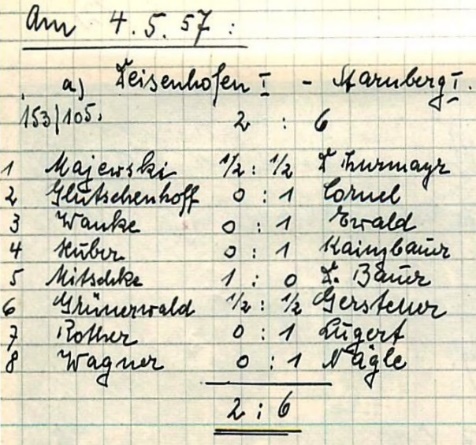 Am 4.5.57:
a) Deisenhofen I - Starnberg I.
153/105. 2 : 6
1 Majewski 1/2 : 1/2 Thurmayr
2 Glutschenhoff 0 : 1 Cornel
3 Wanke 0 : 1 Ewald
4 Huber 0 : 1 Kainzbauer
5 Mitschke 1 : 0 Bauer
6 Grünerwald 1/2 : 1/2 Gerstener
7 Rother 0 : 1 Lugert
8 Wagner 0 : 1 Nägle
2 : 6